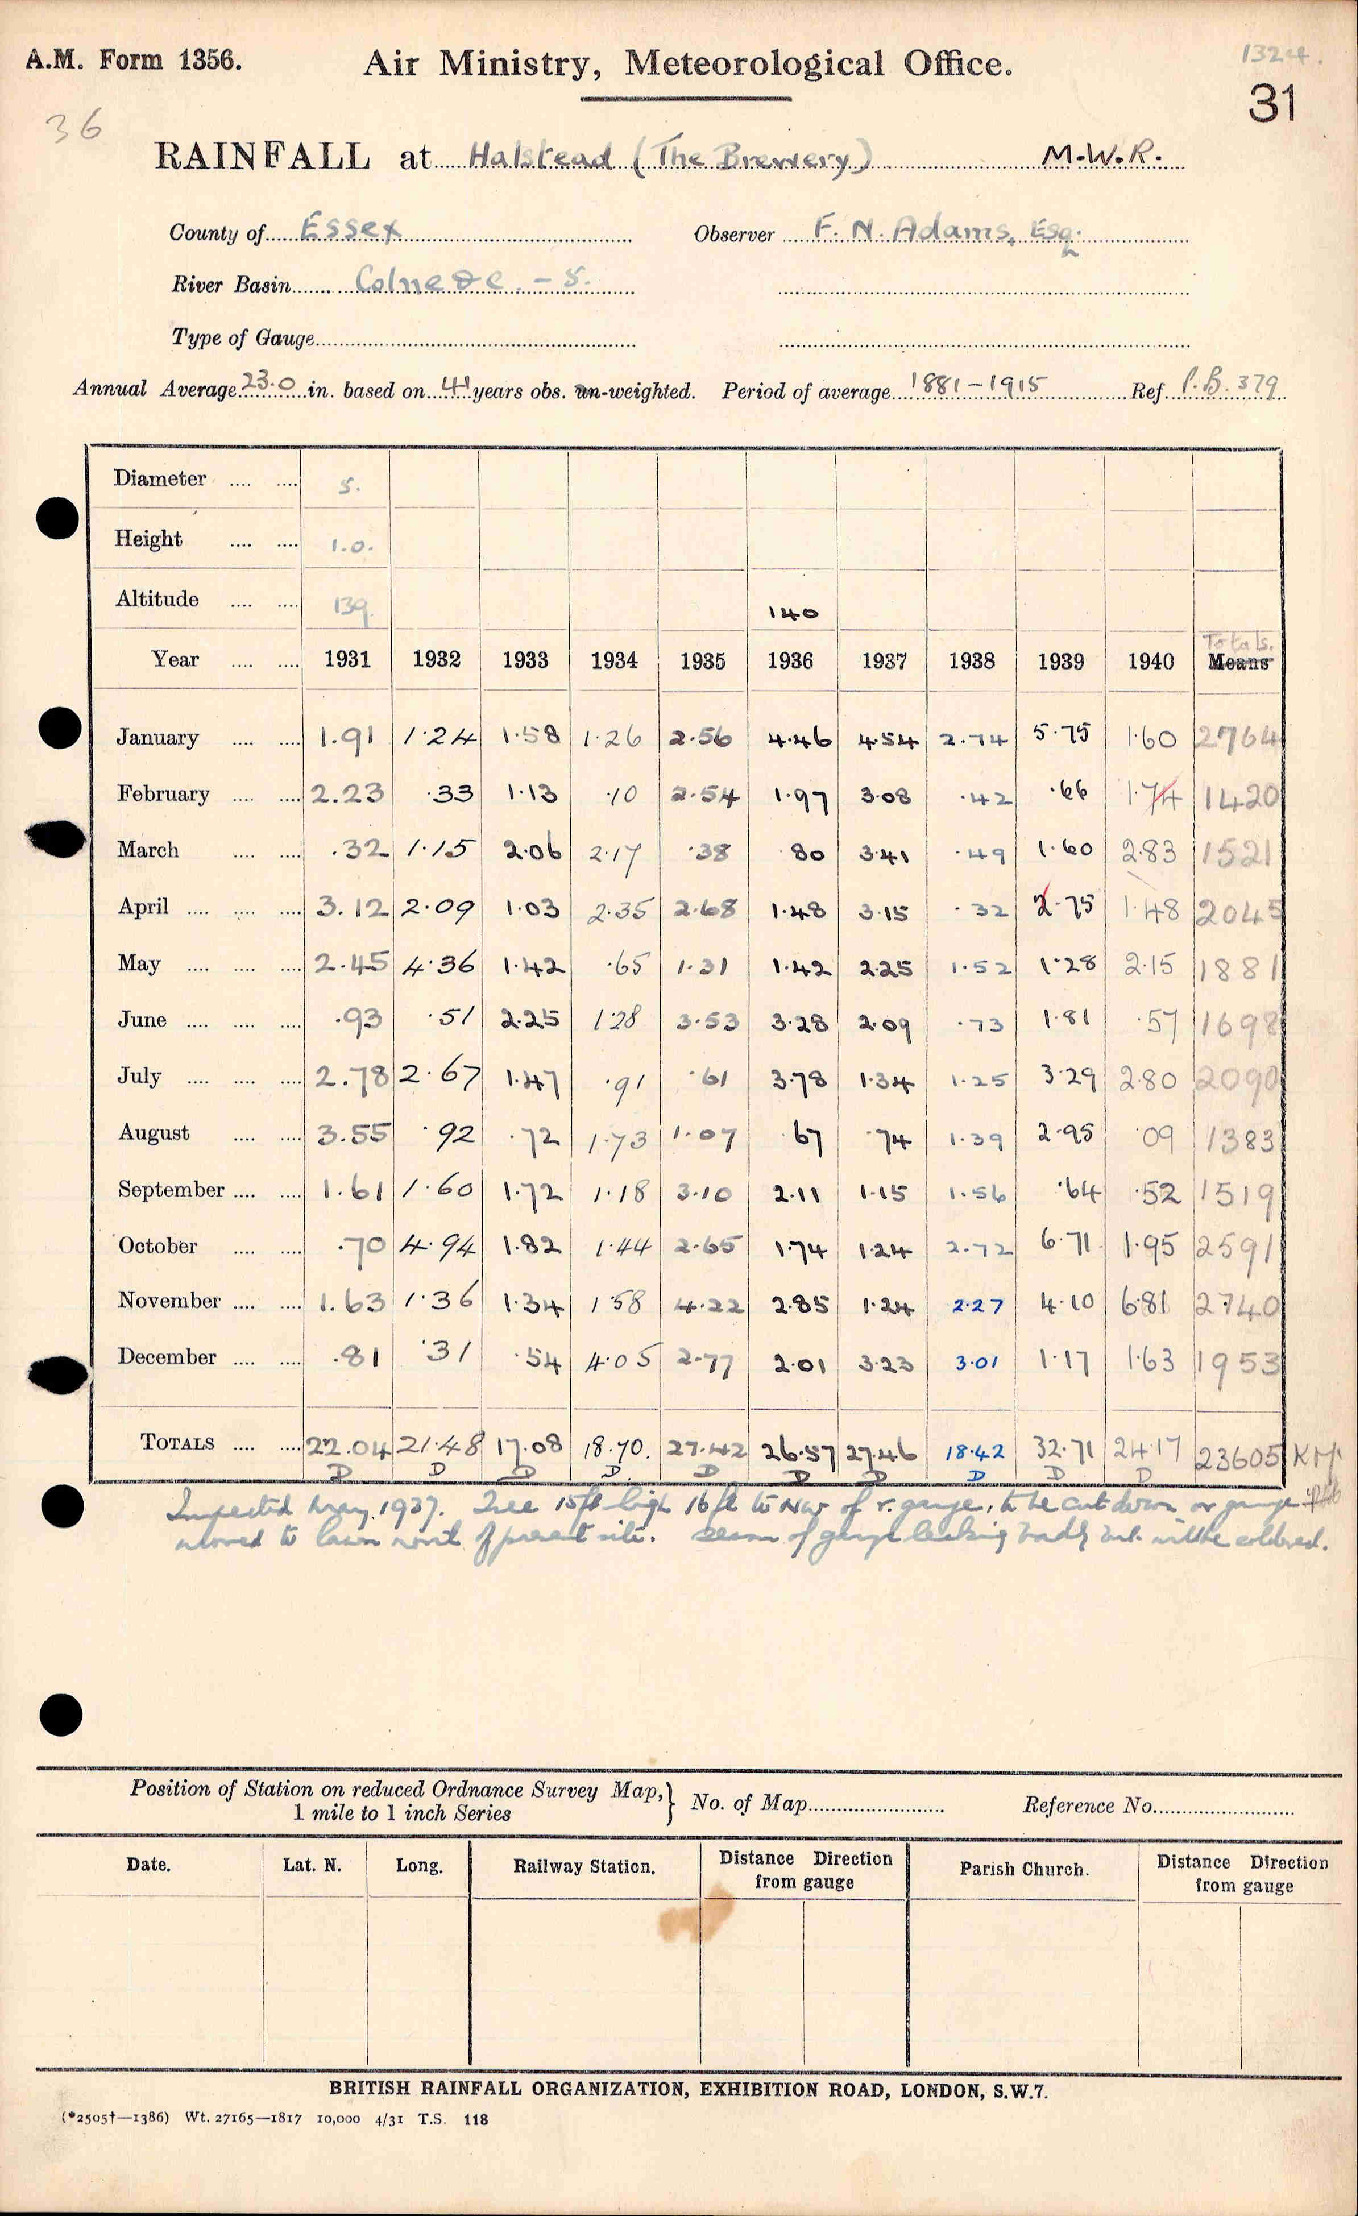 1324.
A.M. Form 1356. Air Ministry, Meteorological Office.
31
36
RAINFALL at Halstead (The Brewery) M.W.R.
County of Essex Observer F. N. Adams, Esq.
River Basin Colne &c. - 5.
Type of Gauge
Annual Average 23.0 in. based on 41 years obs. un-weighted. Period of average 1881-1915 Ref. P.B. 379
Diameter 5.
Height 1.0.
Altitude 139 140
Totals.
Year 1931 1932 1933 1934 1935 1936 1937 1938 1939 1940 Means
January 1.91 1.24 1.58 1.26 2.56 4.46 4.54 2.74 5.75 1.60 2764
February 2.23 .33 1.13 .10 2.54 1.97 3.08 .42 .66 1.74 1420
March .32 1.15 2.06 2.17 .38 .80 3.41 .49 1.60 2.83 1521
April 3.12 2.09 1.03 2.35 2.68 1.48 3.15 .32 2.75 1.48 2045
May 2.45 4.36 1.42 .65 1.31 1.42 2.25 1.52 1.28 2.15 1881
June .93 .51 2.25 1.28 3.53 3.28 2.09 .73 1.81 .57 1698
July 2.78 2.67 1.47 .91 .61 3.78 1.34 1.25 3.29 2.80 2090
August 3.55 .92 .72 1.73 1.07 .67 .74 1.39 2.95 .09 1383
September 1.61 1.60 1.72 1.18 3.10 2.11 1.15 1.56 .64 .52 1519
October .70 4.94 1.82 1.44 2.65 1.74 1.24 2.72 6.71 1.95 2591
November 1.63 1.36 1.34 1.58 4.22 2.85 1.24 2.27 4.10 6.81 2740
December .81 .31 .54 4.05 2.77 2.01 3.23 3.01 1.17 1.63 1953
TOTALS 22.04 21.48 17.08 18.70. 27.42 26.57 27.46 18.42 32.71 24.17 23605
D D D D. D D D D D D
Inspected May 1937. Tree 15ft high 16ft to NW of r. gauge, to be cut down or gauge
moved to lawn of present site. Seam of gauge leaking badly but will be soldered.
Position of Station on reduced Ordnance Survey Map,
1 mile to 1 inch Series } No. of Map Reference No.
Date. Lat. N. Long. Railway Station. Distance Direction from gauge Parish Church. Distance Direction from gauge
BRITISH RAINFALL ORGANIZATION, EXHIBITION ROAD, LONDON, S.W.7.
(*2505†—1386) Wt. 27165—1817 10,000 4/31 T.S. 118